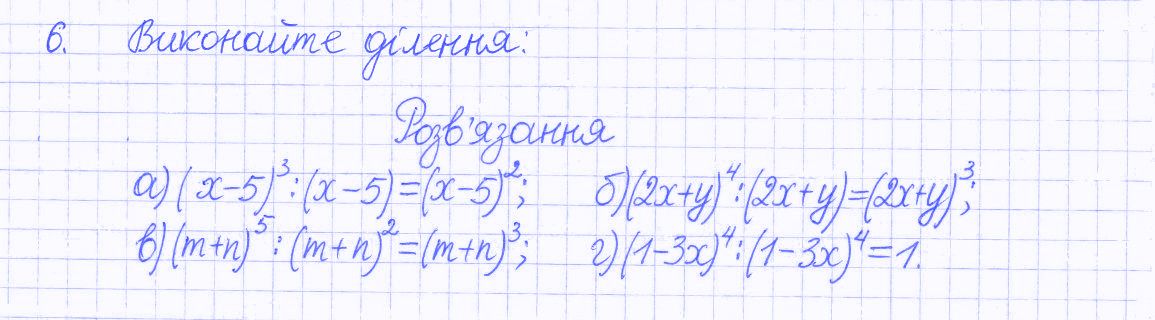 6. Виконайте ділення:
Розв'язання
а) (x-5)³:(x-5)=(x-5)²; б) (2x+y)⁴:(2x+y)=(2x+y)³;
в) (m+n)⁵:(m+n)²=(m+n)³; г) (1-3x)⁴:(1-3x)⁴=1.